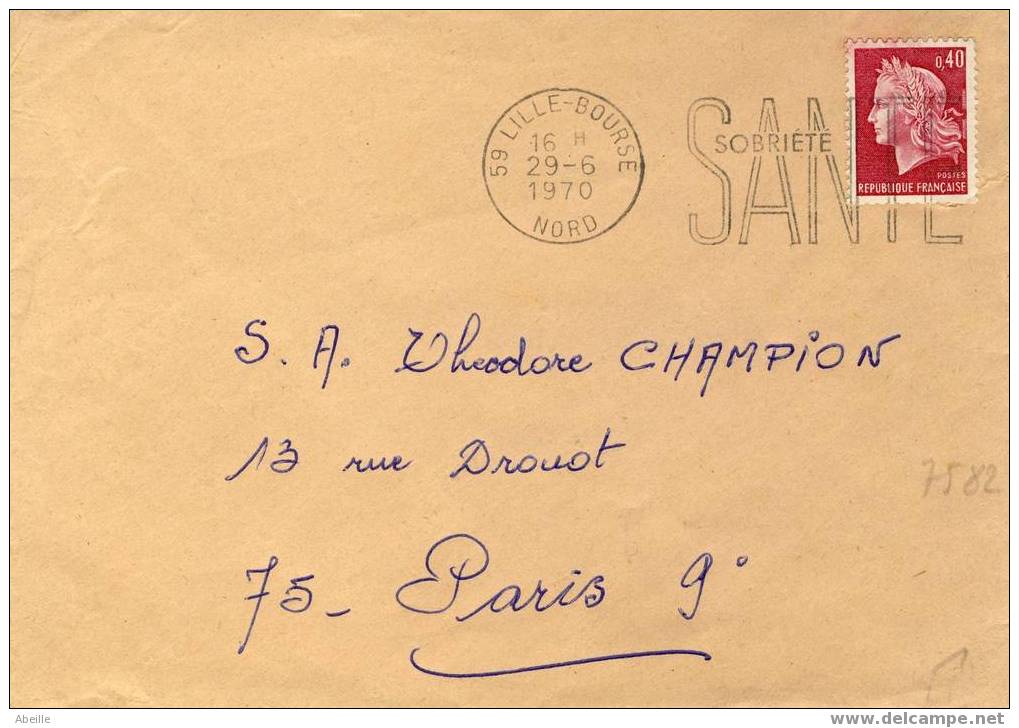 0,40
POSTES
REPUBLIQUE FRANÇAISE
59 LILLE-BOURSE
16 H
29-6
1970
NORD
SOBRIÉTÉ
SANTÉ
S. A. Theodore CHAMPION
13 rue Drouot
7582
75- Paris 9°
Abeille
www.delcampe.net